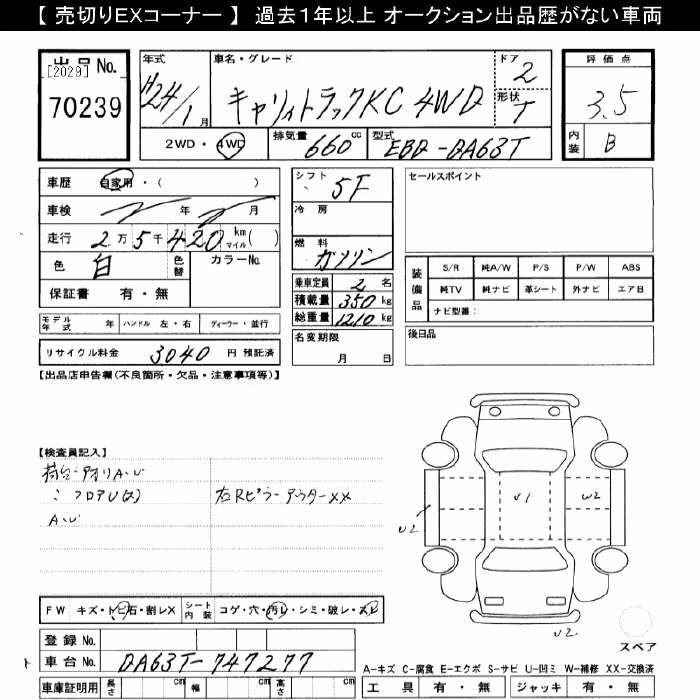 【 売切りEXコーナー 】 過去１年以上 オークション出品歴がない車両
出品 No.
[2029]
70239
年式 H24/1月
車名・グレード
キャリィトラックKC 4WD
ドア 2
形状 T
評価点
3.5
内装 B
2WD・4WD
排気量 660cc
型式 EBD-DA63T
車歴 自家用・( )
車検 年 月
走行 2万5千420 km マイル( )
色 白 色替 カラーNo.
保証書 有・無
シフト 5F
冷房
燃料 ガソリン
乗車定員 2名
積載量 350kg
総重量 1210kg
名変期限
月 日
セールスポイント
装備品
S/R 純A/W P/S P/W ABS
純TV 純ナビ 革シート 外ナビ エア日
ナビ型番:
後日品
モデル年式 年 ハンドル 左・右 ディーラー・並行
リサイクル料金 3040 円 預託済
【出品店申告欄(不良箇所・欠品・注意事項等)】
【検査員記入】
荷台アオリA・U
: フロアU(大)
右Rピラーアウターxx
A・U
U1
U2
U2
U2
FW キズ・トビ石・割レX
シート内装 コゲ・穴・汚レ・シミ・破レ・スレ
登録 No.
車台 No. DA63T-747277
車庫証明用 長さ cm 幅 cm 高さ cm
スペア
A-キズ C-腐食 E-エクボ S-サビ U-凹ミ W-補修 XX-交換済
工具 有・無 ジャッキ 有・無